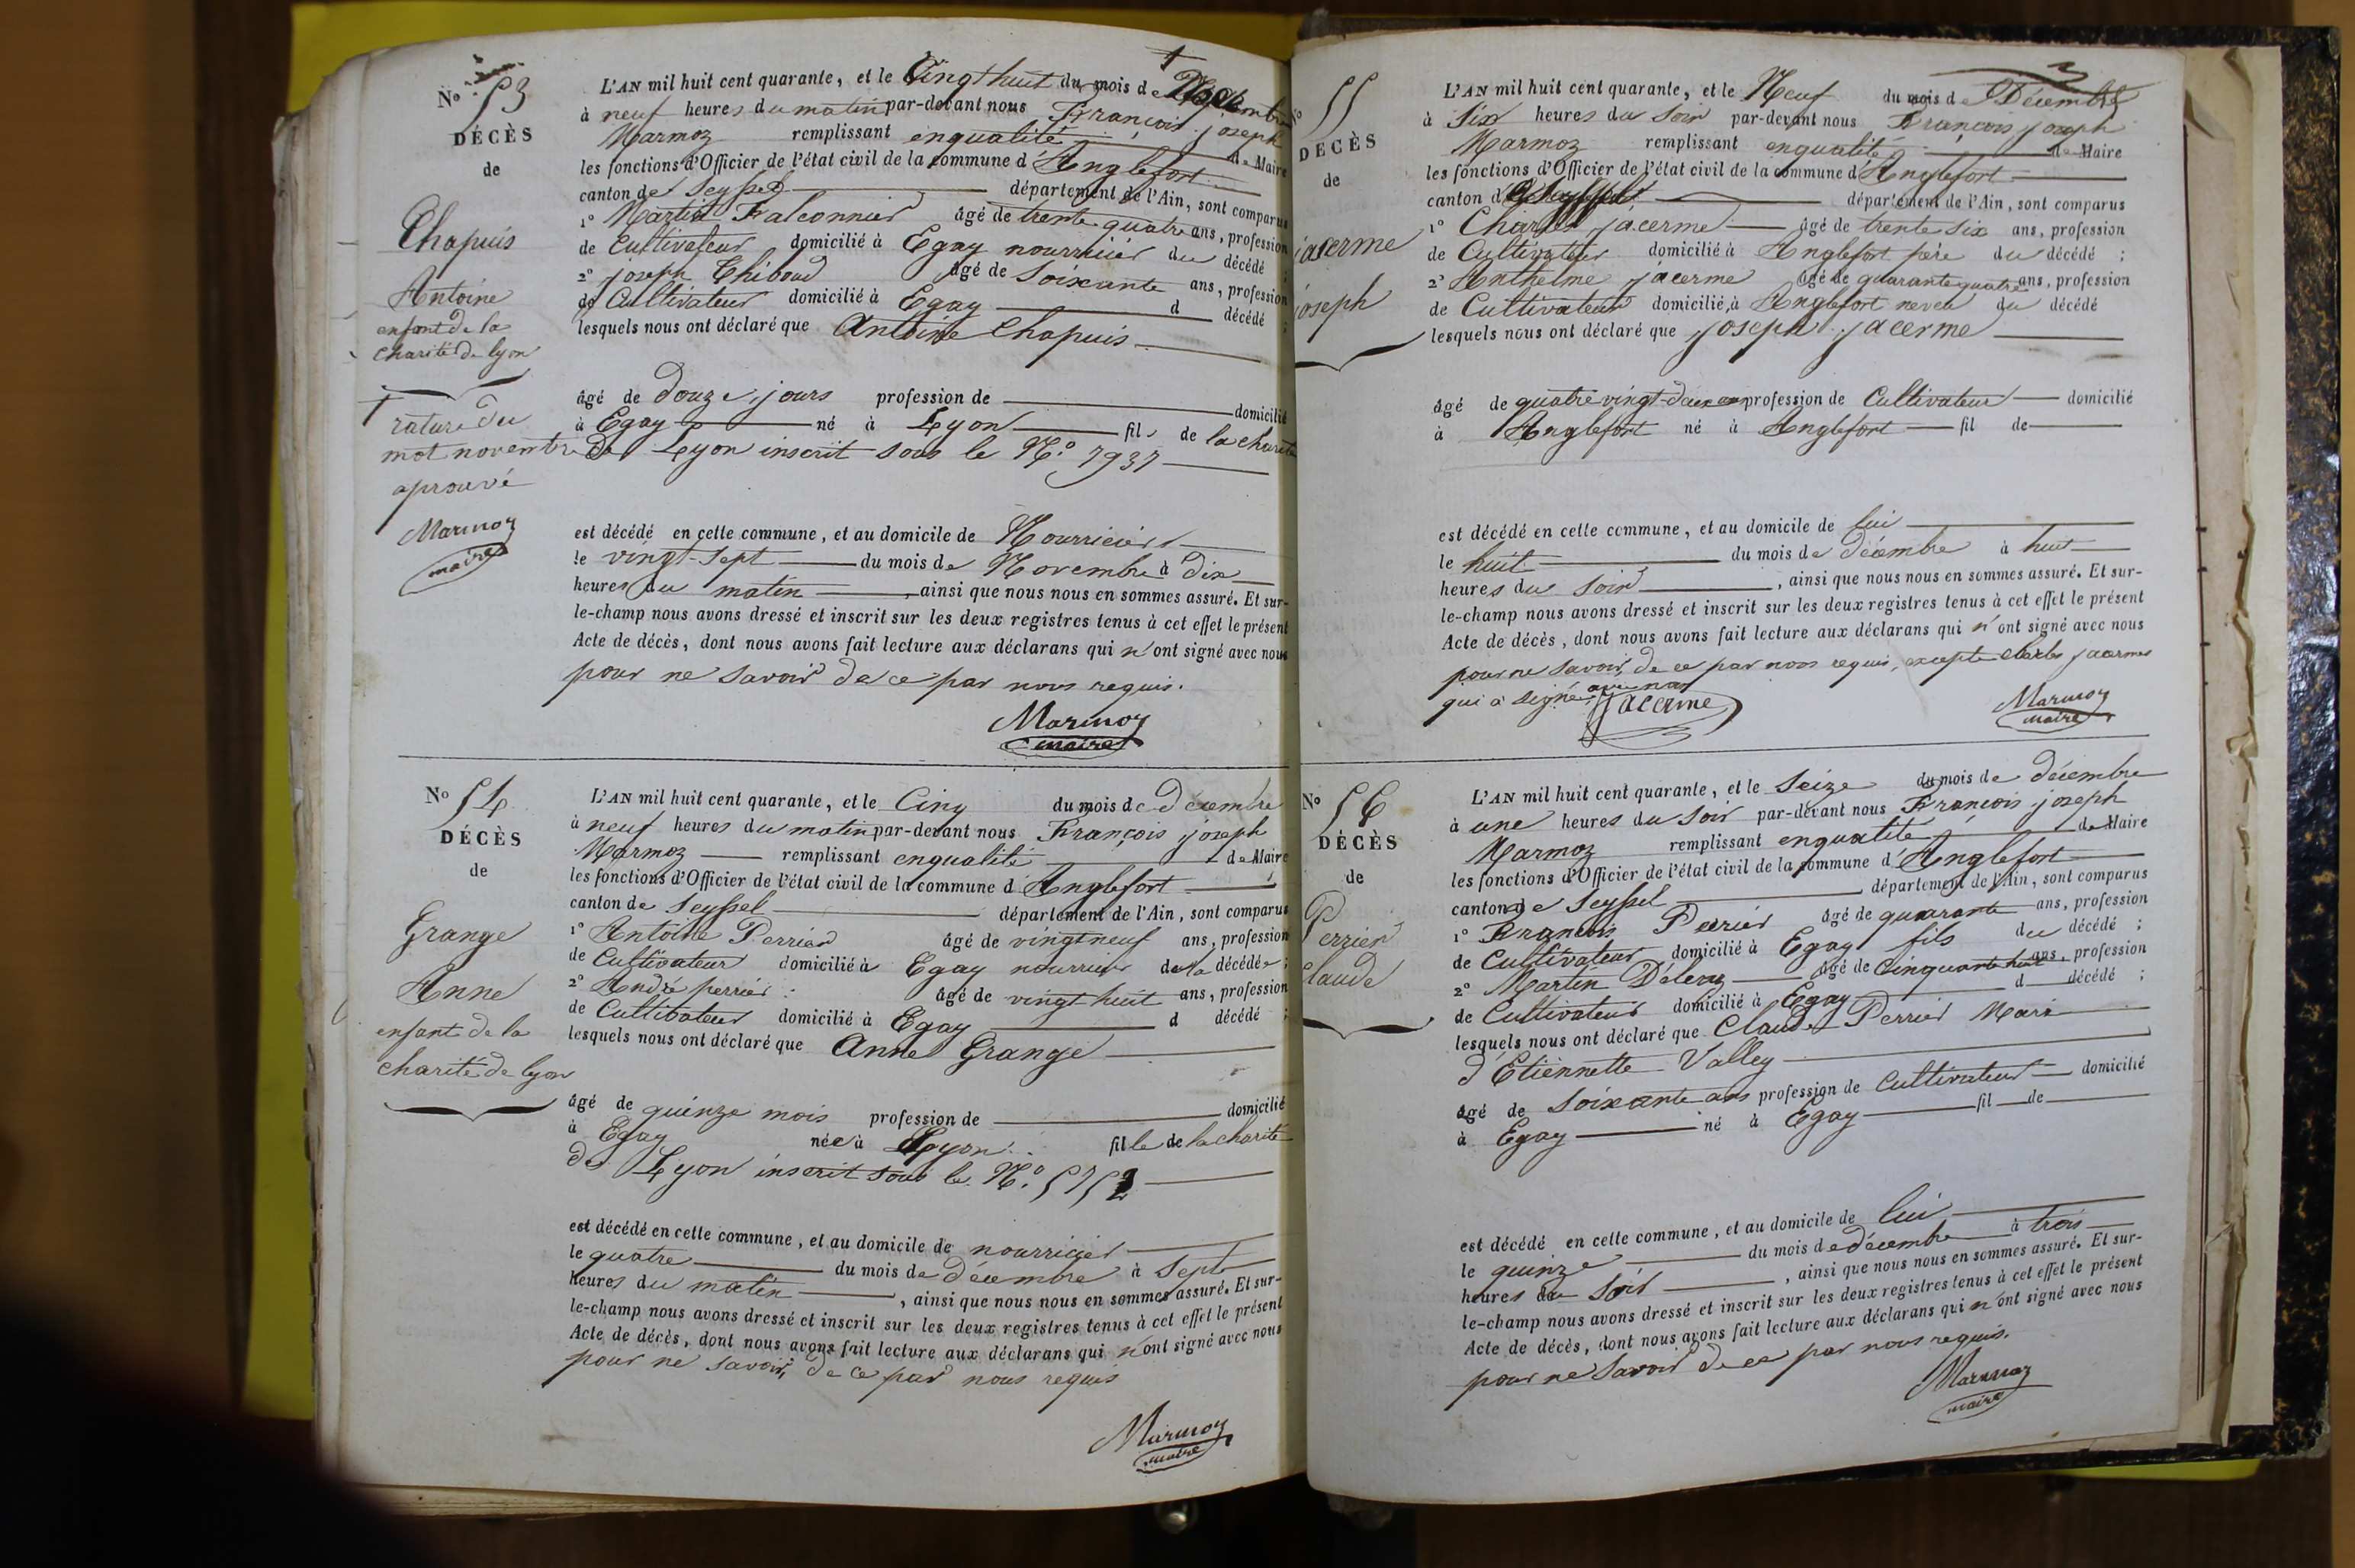 N° 53
DÉCÈS
de
Chapuis
Antoine
enfant de la
charité de lyon
rature du
mot novembre
aprouvé
Marmoz
maire
L'AN mil huit cent quarante, et le Vingt huit du mois de Novembre
à neuf heures du matin par-devant nous François joseph
Marmoz remplissant enqualité de Maire
les fonctions d'Officier de l'état civil de la commune d'Anglefort
canton de Seyssel département de l'Ain, sont comparus
1° Martin Falconnier âgé de trente quatre ans, profession
de Cultivateur domicilié à Egay nourricier du décédé ;
2° joseph Thiboud âgé de Soixante ans, profession
de Cultivateur domicilié à Egay d décédé ;
lesquels nous ont déclaré que Antoine Chapuis
âgé de douze jours profession de domicilié
à Egay né à Lyon fils de la charité
de Lyon inscrit sous le N° 7937
est décédé en cette commune, et au domicile de Nourricier
le vingt-sept du mois de Novembre à dix
heures du matin, ainsi que nous nous en sommes assuré. Et sur-
le-champ nous avons dressé et inscrit sur les deux registres tenus à cet effet le présent
Acte de décès, dont nous avons fait lecture aux déclarans qui n'ont signé avec nous
pour ne savoir de ce par nous requis.
Marmoz
maire
N° 54
DÉCÈS
de
Grange
Anne
enfant de la
charité de lyon
L'AN mil huit cent quarante, et le Cinq du mois de décembre
à neuf heures du matin par-devant nous François joseph
Marmoz remplissant enqualité de Maire
les fonctions d'Officier de l'état civil de la commune d'Anglefort
canton de Seyssel département de l'Ain, sont comparus
1° Antoine Perrier âgé de vingt neuf ans, profession
de Cultivateur domicilié à Egay nourricier de la décédée ;
2° André perrier âgé de vingt huit ans, profession
de Cultivateur domicilié à Egay d décédé ;
lesquels nous ont déclaré que Anne Grange
âgé de quinze mois profession de domicilié
à Egay née à Lyon fille de la charité
de Lyon inscrit sous le N°
est décédé en cette commune, et au domicile de nourricier
le quatre du mois de décembre à Sept
heures du matin, ainsi que nous nous en sommes assuré. Et sur-
le-champ nous avons dressé et inscrit sur les deux registres tenus à cet effet le présent
Acte de décès, dont nous avons fait lecture aux déclarans qui n'ont signé avec nous
pour ne savoir, de ce par nous requis
Marmoz
maire
N° 55
DÉCÈS
de
jacerme
joseph
L'AN mil huit cent quarante, et le Neuf du mois de Décembre
à Six heures du soir par-devant nous François joseph
Marmoz remplissant enqualité de Maire
les fonctions d'Officier de l'état civil de la commune d'Anglefort
canton de Seyssel département de l'Ain, sont comparus
1° Charles jacerme âgé de trente six ans, profession
de Cultivateur domicilié à Anglefort père du décédé ;
2° Anthelme jacerme âgé de quarante quatre ans, profession
de Cultivateur domicilié à Anglefort neveu du décédé
lesquels nous ont déclaré que joseph jacerme
âgé de quatre vingt-deux ans profession de Cultivateur domicilié
à Anglefort né à Anglefort fil de
est décédé en cette commune, et au domicile de lui
le huit du mois de décembre à huit
heures du soir, ainsi que nous nous en sommes assuré. Et sur-
le-champ nous avons dressé et inscrit sur les deux registres tenus à cet effet le présent
Acte de décès, dont nous avons fait lecture aux déclarans qui n'ont signé avec nous
pour ne savoir, de ce par nous requis, excepté charles jacerme
qui a signé avec nous
jacerme
Marmoz
maire
N° 56
DÉCÈS
de
Perrier
Claude
L'AN mil huit cent quarante, et le Seize du mois de décembre
à une heures du soir par-devant nous François joseph
Marmoz remplissant enqualité de Maire
les fonctions d'Officier de l'état civil de la commune d'Anglefort
canton de Seyssel département de l'Ain, sont comparus
1° François Perrier âgé de quarante ans, profession
de Cultivateur domicilié à Egay fils du décédé ;
2° Martin Délerz âgé de Cinquante huit ans, profession
de Cultivateur domicilié à Egay d décédé ;
lesquels nous ont déclaré que Claude Perrier Mari
d'Etiennette Valley
âgé de Soixante ans profession de Cultivateur domicilié
à Egay né à Egay fil de
est décédé en cette commune, et au domicile de lui
le quinze du mois de décembre à trois
heures du soir, ainsi que nous nous en sommes assuré. Et sur-
le-champ nous avons dressé et inscrit sur les deux registres tenus à cet effet le présent
Acte de décès, dont nous avons fait lecture aux déclarans qui n'ont signé avec nous
pour ne savoir de ce par nous requis.
Marmoz
maire